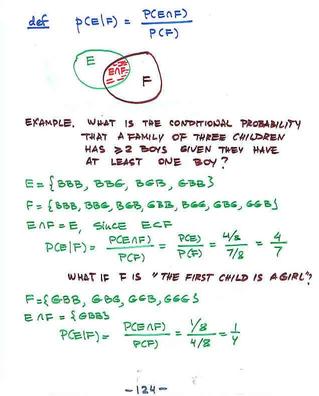 def P(E|F) = P(E∩F) / P(F)
E E∩F F
EXAMPLE. WHAT IS THE CONDITIONAL PROBABILITY
THAT A FAMILY OF THREE CHILDREN
HAS ≥2 BOYS GIVEN THEY HAVE
AT LEAST ONE BOY?
E = {BBB, BBG, BGB, GBB}
F = {BBB, BBG, BGB, GBB, BGG, GBG, GGB}
E∩F = E, SINCE E⊂F
P(E|F) = P(E∩F) / P(F) = P(E) / P(F) = 4/8 / 7/8 = 4/7
WHAT IF F IS "THE FIRST CHILD IS A GIRL"?
F = {GBB, GBG, GGB, GGG}
E∩F = {GBB}
P(E|F) = P(E∩F) / P(F) = 1/8 / 4/8 = 1/4
-124-